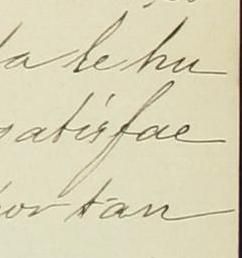 da le hu
satisfac
por tan